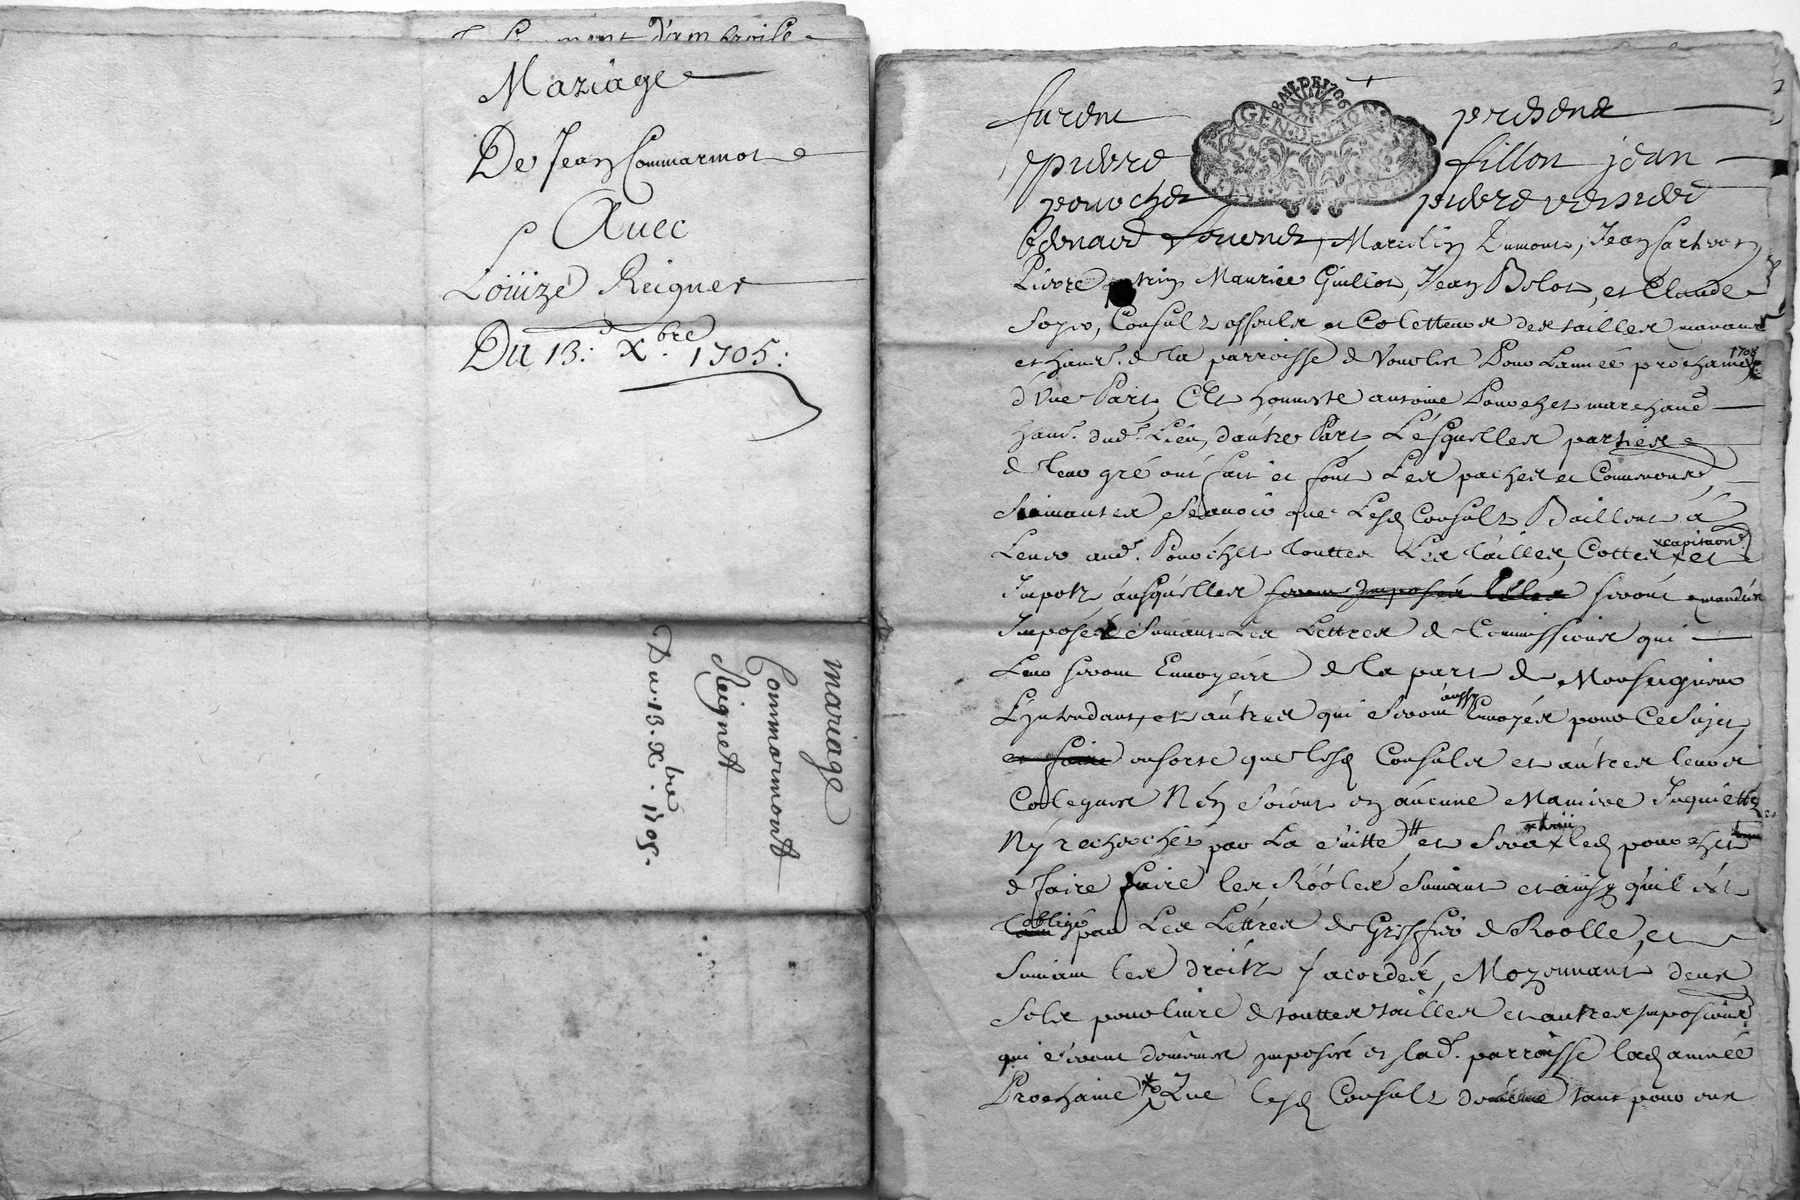 d'ambroise
Mariage
De Jean Commarmot
Avec
Loüize Reigner
Du 13.e Xbre 1705:
mariage
Commarmont
Reignet
Du 13. Xbre 1705.
furent presens
GEN. DE LION
pierre fillon jean
ponochet pierre
Marcelin Dumont, Jean
Pierre Maurice Guillot, Jean Bolot, et Claude
Consulz et Coletteurs des tailles manans
et hans. de la parroisse de pour Lannéé prochaine 1706
d'Vne Part, Et honneste antoine Ponochet marchand
han. dud. Lieu, d'autre Part, Lesquelles parties
de leur gré ont fait et font Les paches et Conventions
Suivantes, Sçavoir que Lesd Consulz Baillent á
aud. Ponochet touttes Les tailles, Cottes capitaon et
Impotz ausquelles seront
Imposés Suivant Les Lettres de Commissions qui
Leur seront Envoyées de la part de Monseigneur
L'Intendant, et autres qui Seront aussy Envoyés pour Ce Sujet,
et faire ensorte que lesd Consulz et autres leurs
Colegues N'en Soient en aucune Maniere Inquiettez
Ny recherchés par La Suitte et Sera led ponochet
de faire faire les Róóles Suivant et ainsy qu'il est
obligé par Les Lettres de Greffier de Roolle, et
Suivant les droitz y acordés, Moyennant deux
Solz pour livre de touttes tailles et autres Impositions
qui Seront imposés en lad. parroisse lad année
Prochaine Que lesd Consulz tant pour eux